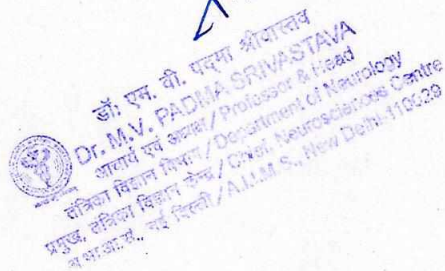 डॉ. एम. वी. पद्मा श्रीवास्तव
Dr. M.V. PADMA SRIVASTAVA
आचार्य एवं अध्यक्ष / Professor & Head
तंत्रिका विज्ञान विभाग / Department of Neurology
प्रमुख, तंत्रिका विज्ञान केन्द्र / Chief, Neurosciences Centre
अ.भा.आ.सं., नई दिल्ली / A.I.I.M.S., New Delhi-110029